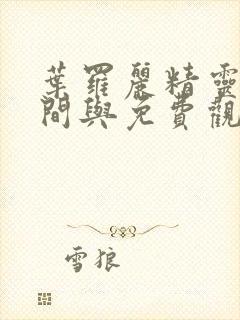 葉羅麗精靈
間與免費觀
雪狼